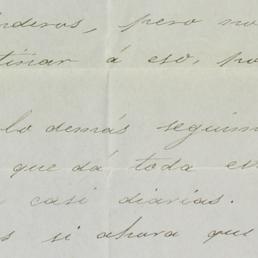 nderos, pero no
tinar á eso, po
lo demás seguim
que dá toda es
casi diarias.
s si ahora que